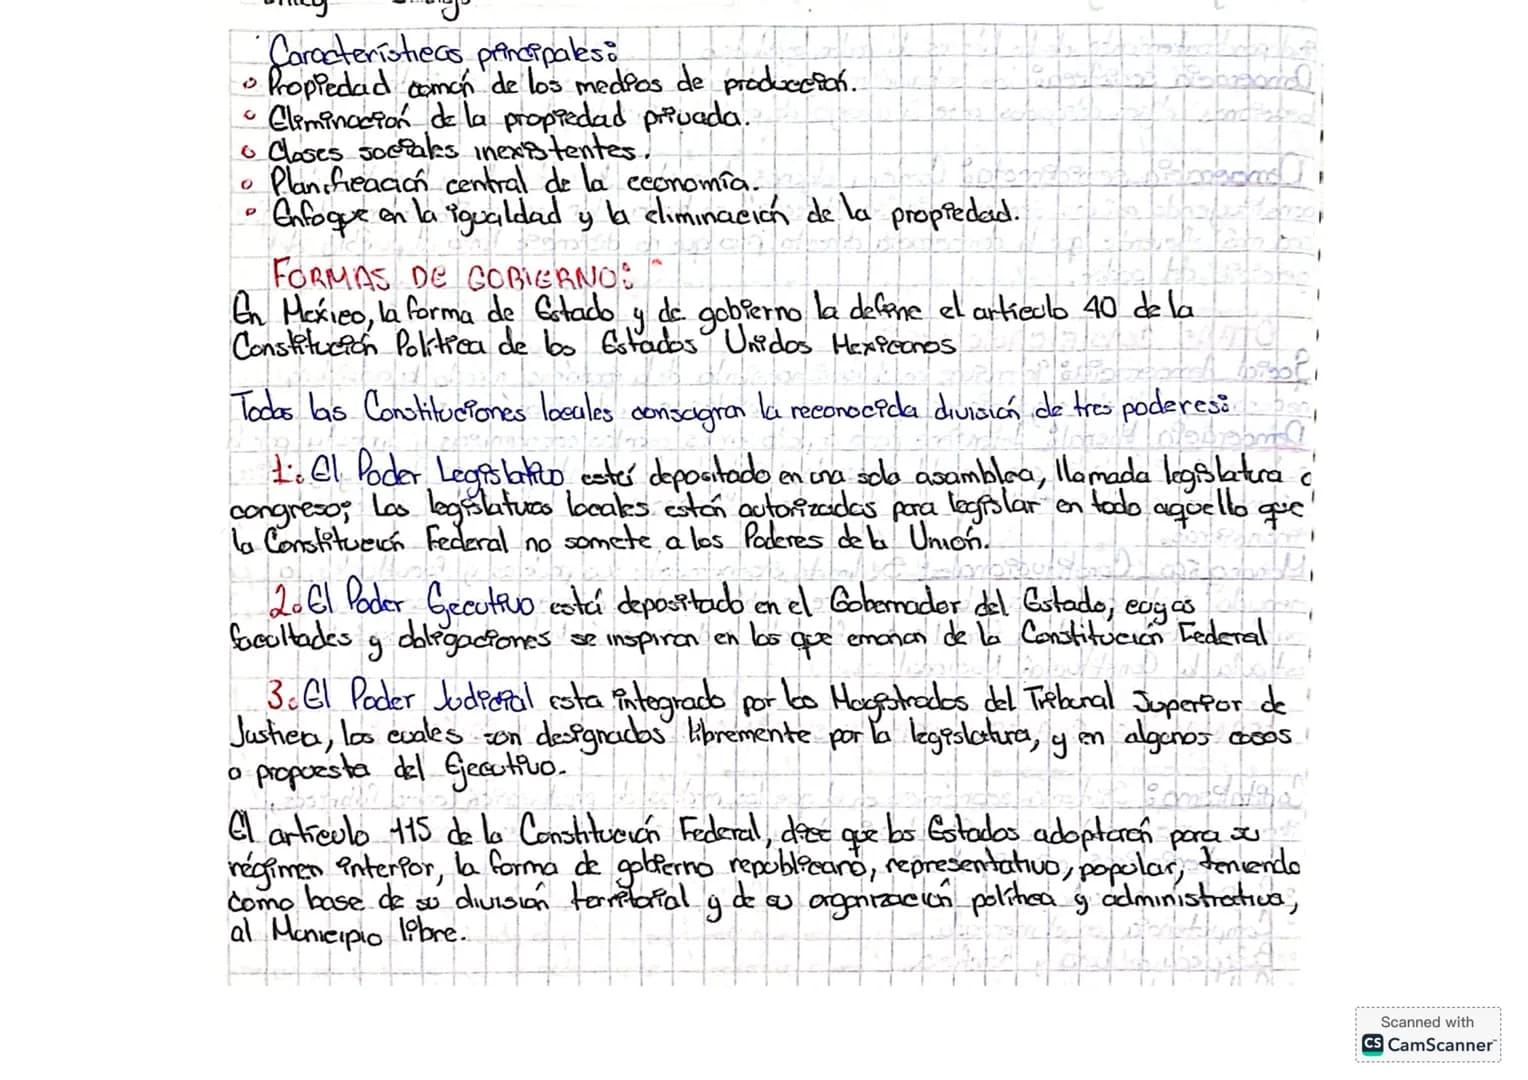 Características principales:
Propiedad común de los medios de producción.
Eliminación de la propiedad privada.
Clases sociales inexistentes.
Planificación central de la economía.
Enfoque en la igualdad y la eliminación de la propiedad.
FORMAS DE GOBIERNO:
En México, la forma de Estado y de gobierno la define el artículo 40 de la
Constitución Política de los Estados Unidos Mexicanos
Todas las Constituciones locales consagran la reconocida división de tres poderes:
1. El Poder Legislativo está depositado en una sola asamblea, llamada legislatura o
congreso; Las legislaturas locales están autorizadas para legislar en todo aquello que
la Constitución Federal no somete a los Poderes de la Unión.
2. El Poder Ejecutivo está depositado en el Gobernador del Estado, cuyas
facultades y obligaciones se inspiran en las que emanan de la Constitución Federal
3. El Poder Judicial esta integrado por los Magistrados del Tribunal Superior de
Justicia, los cuales son designados libremente por la legislatura, y en algunos casos
a propuesta del Ejecutivo.
El artículo 115 de la Constitución Federal, dice que los Estados adoptarán para su
régimen interior, la forma de gobierno republicano, representativo, popular, teniendo
como base de su división territorial y de su organización política y administrativa,
al Municipio libre.
Scanned with
CS CamScanner